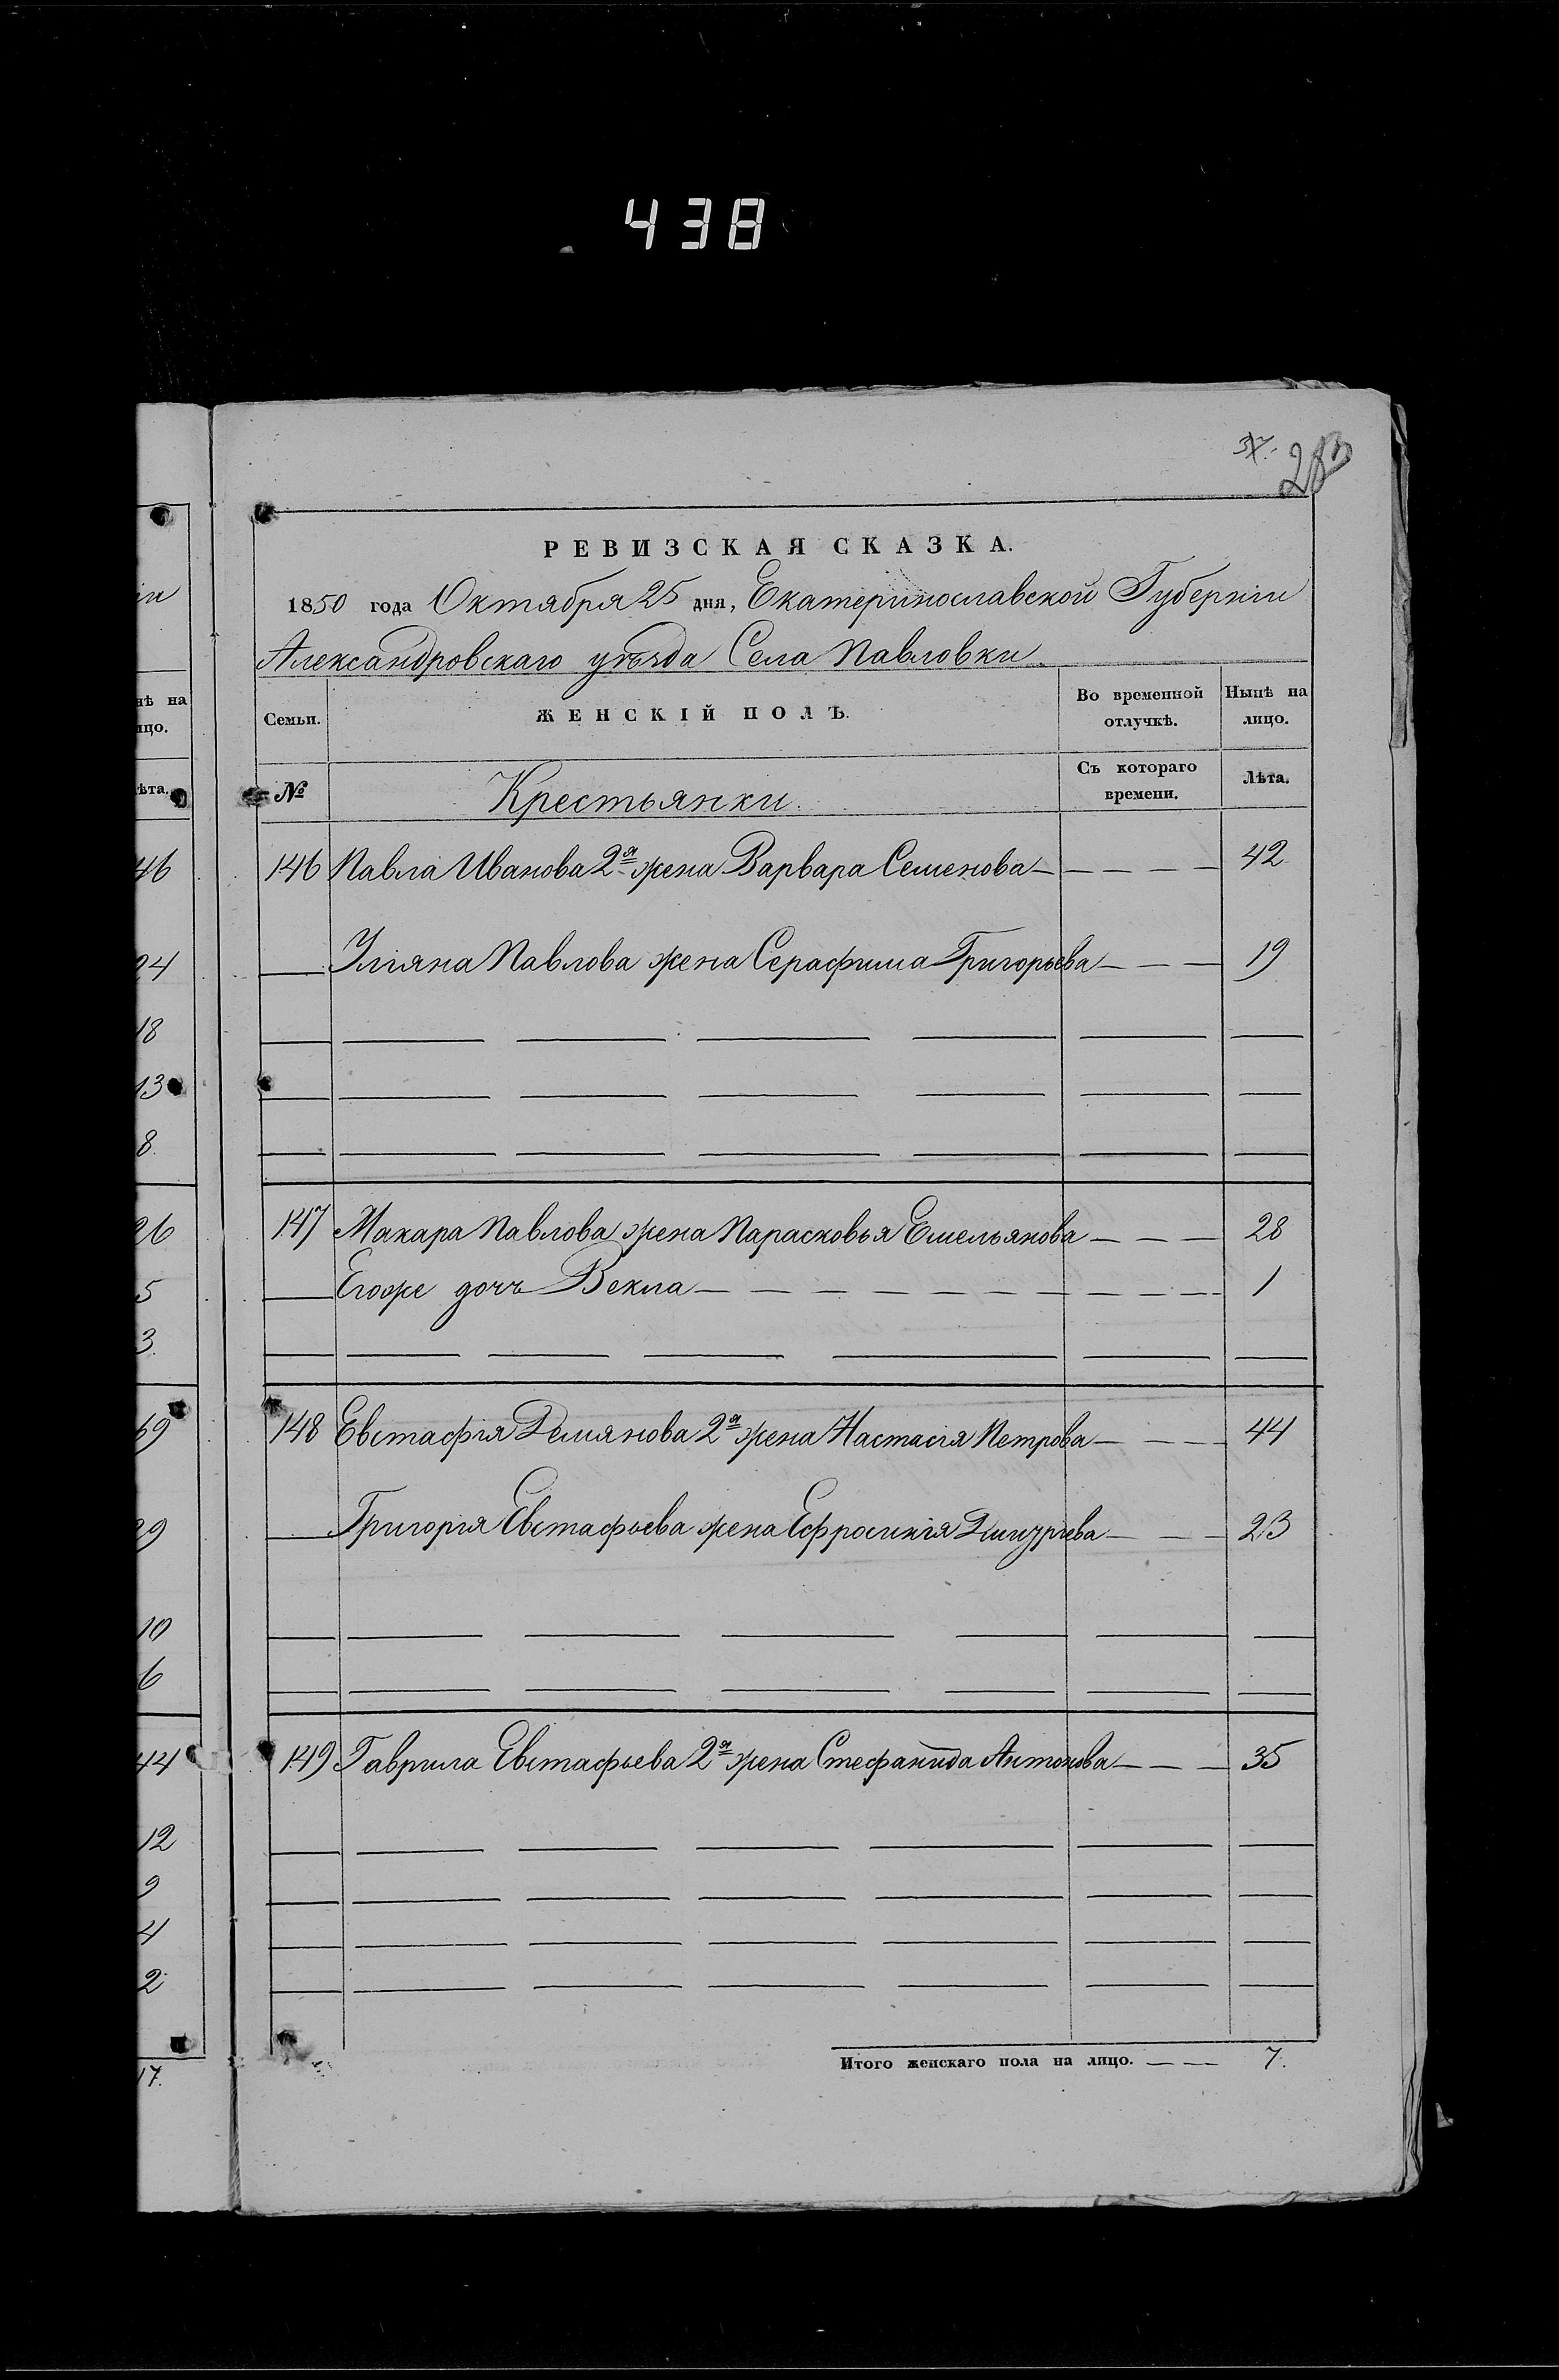 438
37. 283
РЕВИЗСКАЯ СКАЗКА.
1850 года Октября 25 дня, Екатеринославской Губернiи
Александровскаго уѣзда Села Павловки
Семьи. ЖЕНСКIЙ ПОЛЪ. Во временной отлучкѣ. Нынѣ на лицо.
№ Крестьянки. Съ котораго времени. Лѣта.
146 Павла Иванова 2я жена Варвара Семенова 42
Улiяна Павлова жена Серафима Григорьева 19
147 Макара Павлова жена Парасковья Емельянова 28
Егоже дочь Векла 1
148 Евстафiя Демянова 2я жена Настасiя Петрова 44
Григорiя Евстафьева жена Ефросинiя 23
149 Гаврила Евстафьева 2я жена Стефанида Антонова 35
Итого женскаго пола на лицо. 7.
iи
нѣ на
ицо.
ѣта.
46
24
18
13
8.
26
5
3.
69
29
10
6
44
12
9
4
2
17.